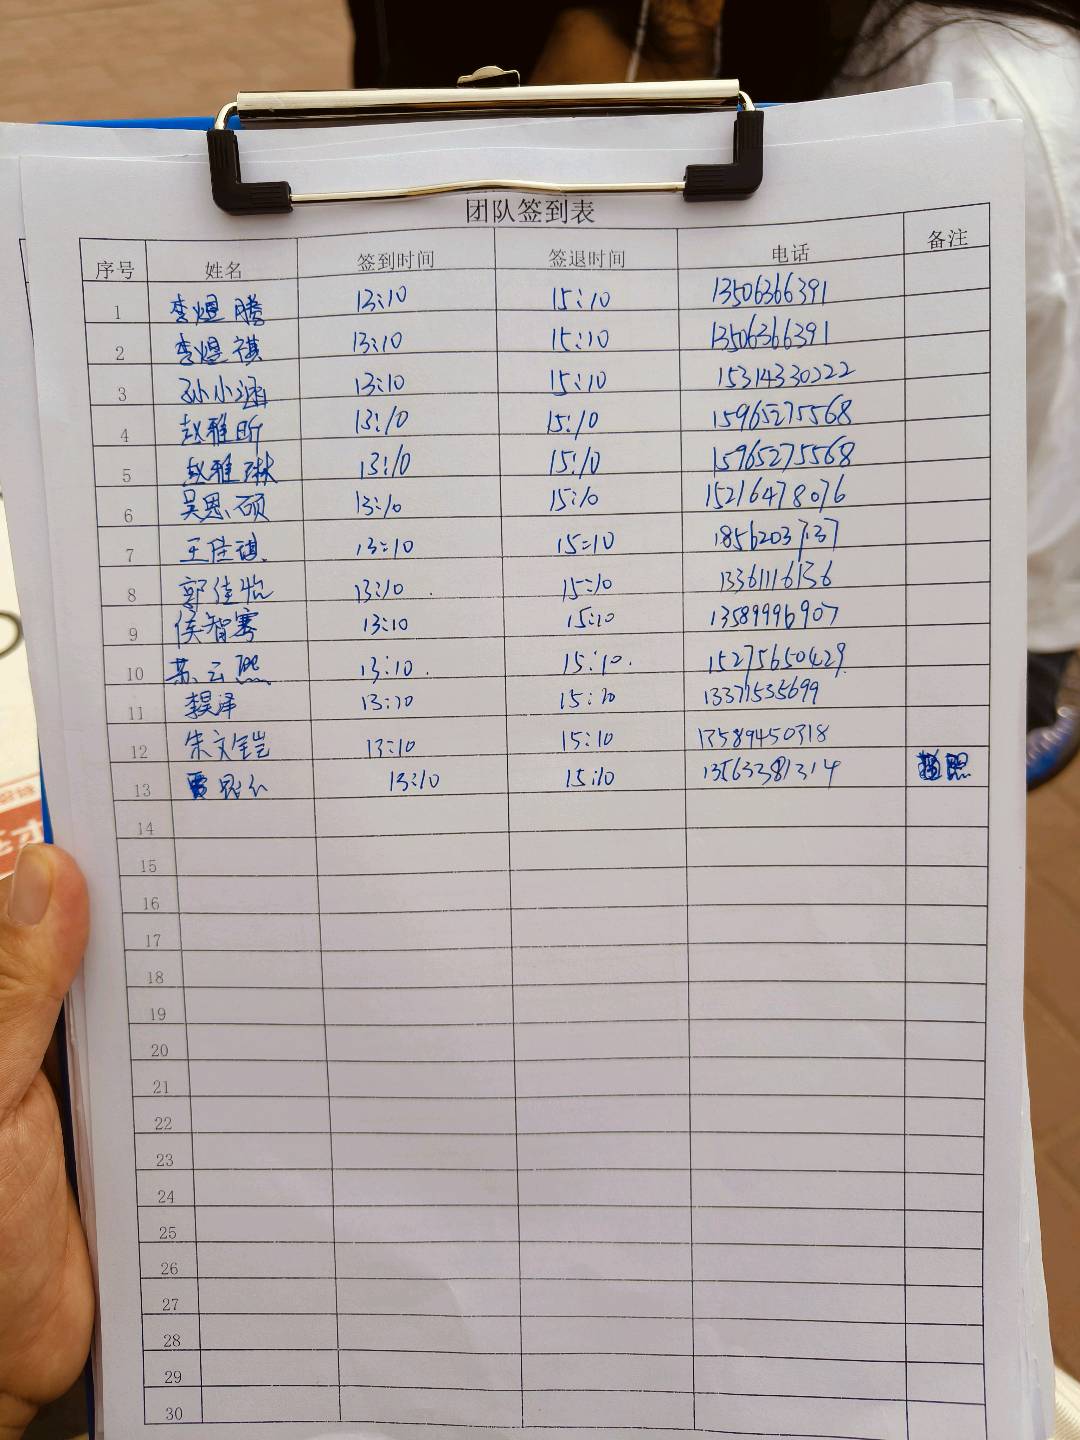 团队签到表
序号 姓名 签到时间 签退时间 电话 备注
1 李煜腾 13:10 15:10 13506366391
2 李煜祺 13:10 15:10 13506366391
3 孙小涵 13:10 15:10 15314330222
4 赵雅昕 13:10 15:10 15965275568
5 赵雅琳 13:10 15:10 15965275568
6 吴恩硕 13:10 15:10 15216478076
7 王佳琪 13:10 15:10
8 郭佳怡 13:10 15:10 13361116136
9 侯智骞 13:10 15:10 13589996907
10 苏云熙 13:10 15:10 15275650429
11 13:10 15:10 13371535699
12 朱文铠 13:10 15:10 13589450318
13 13:10 15:10 13563381314
14
15
16
17
18
19
20
21
22
23
24
25
26
27
28
29
30